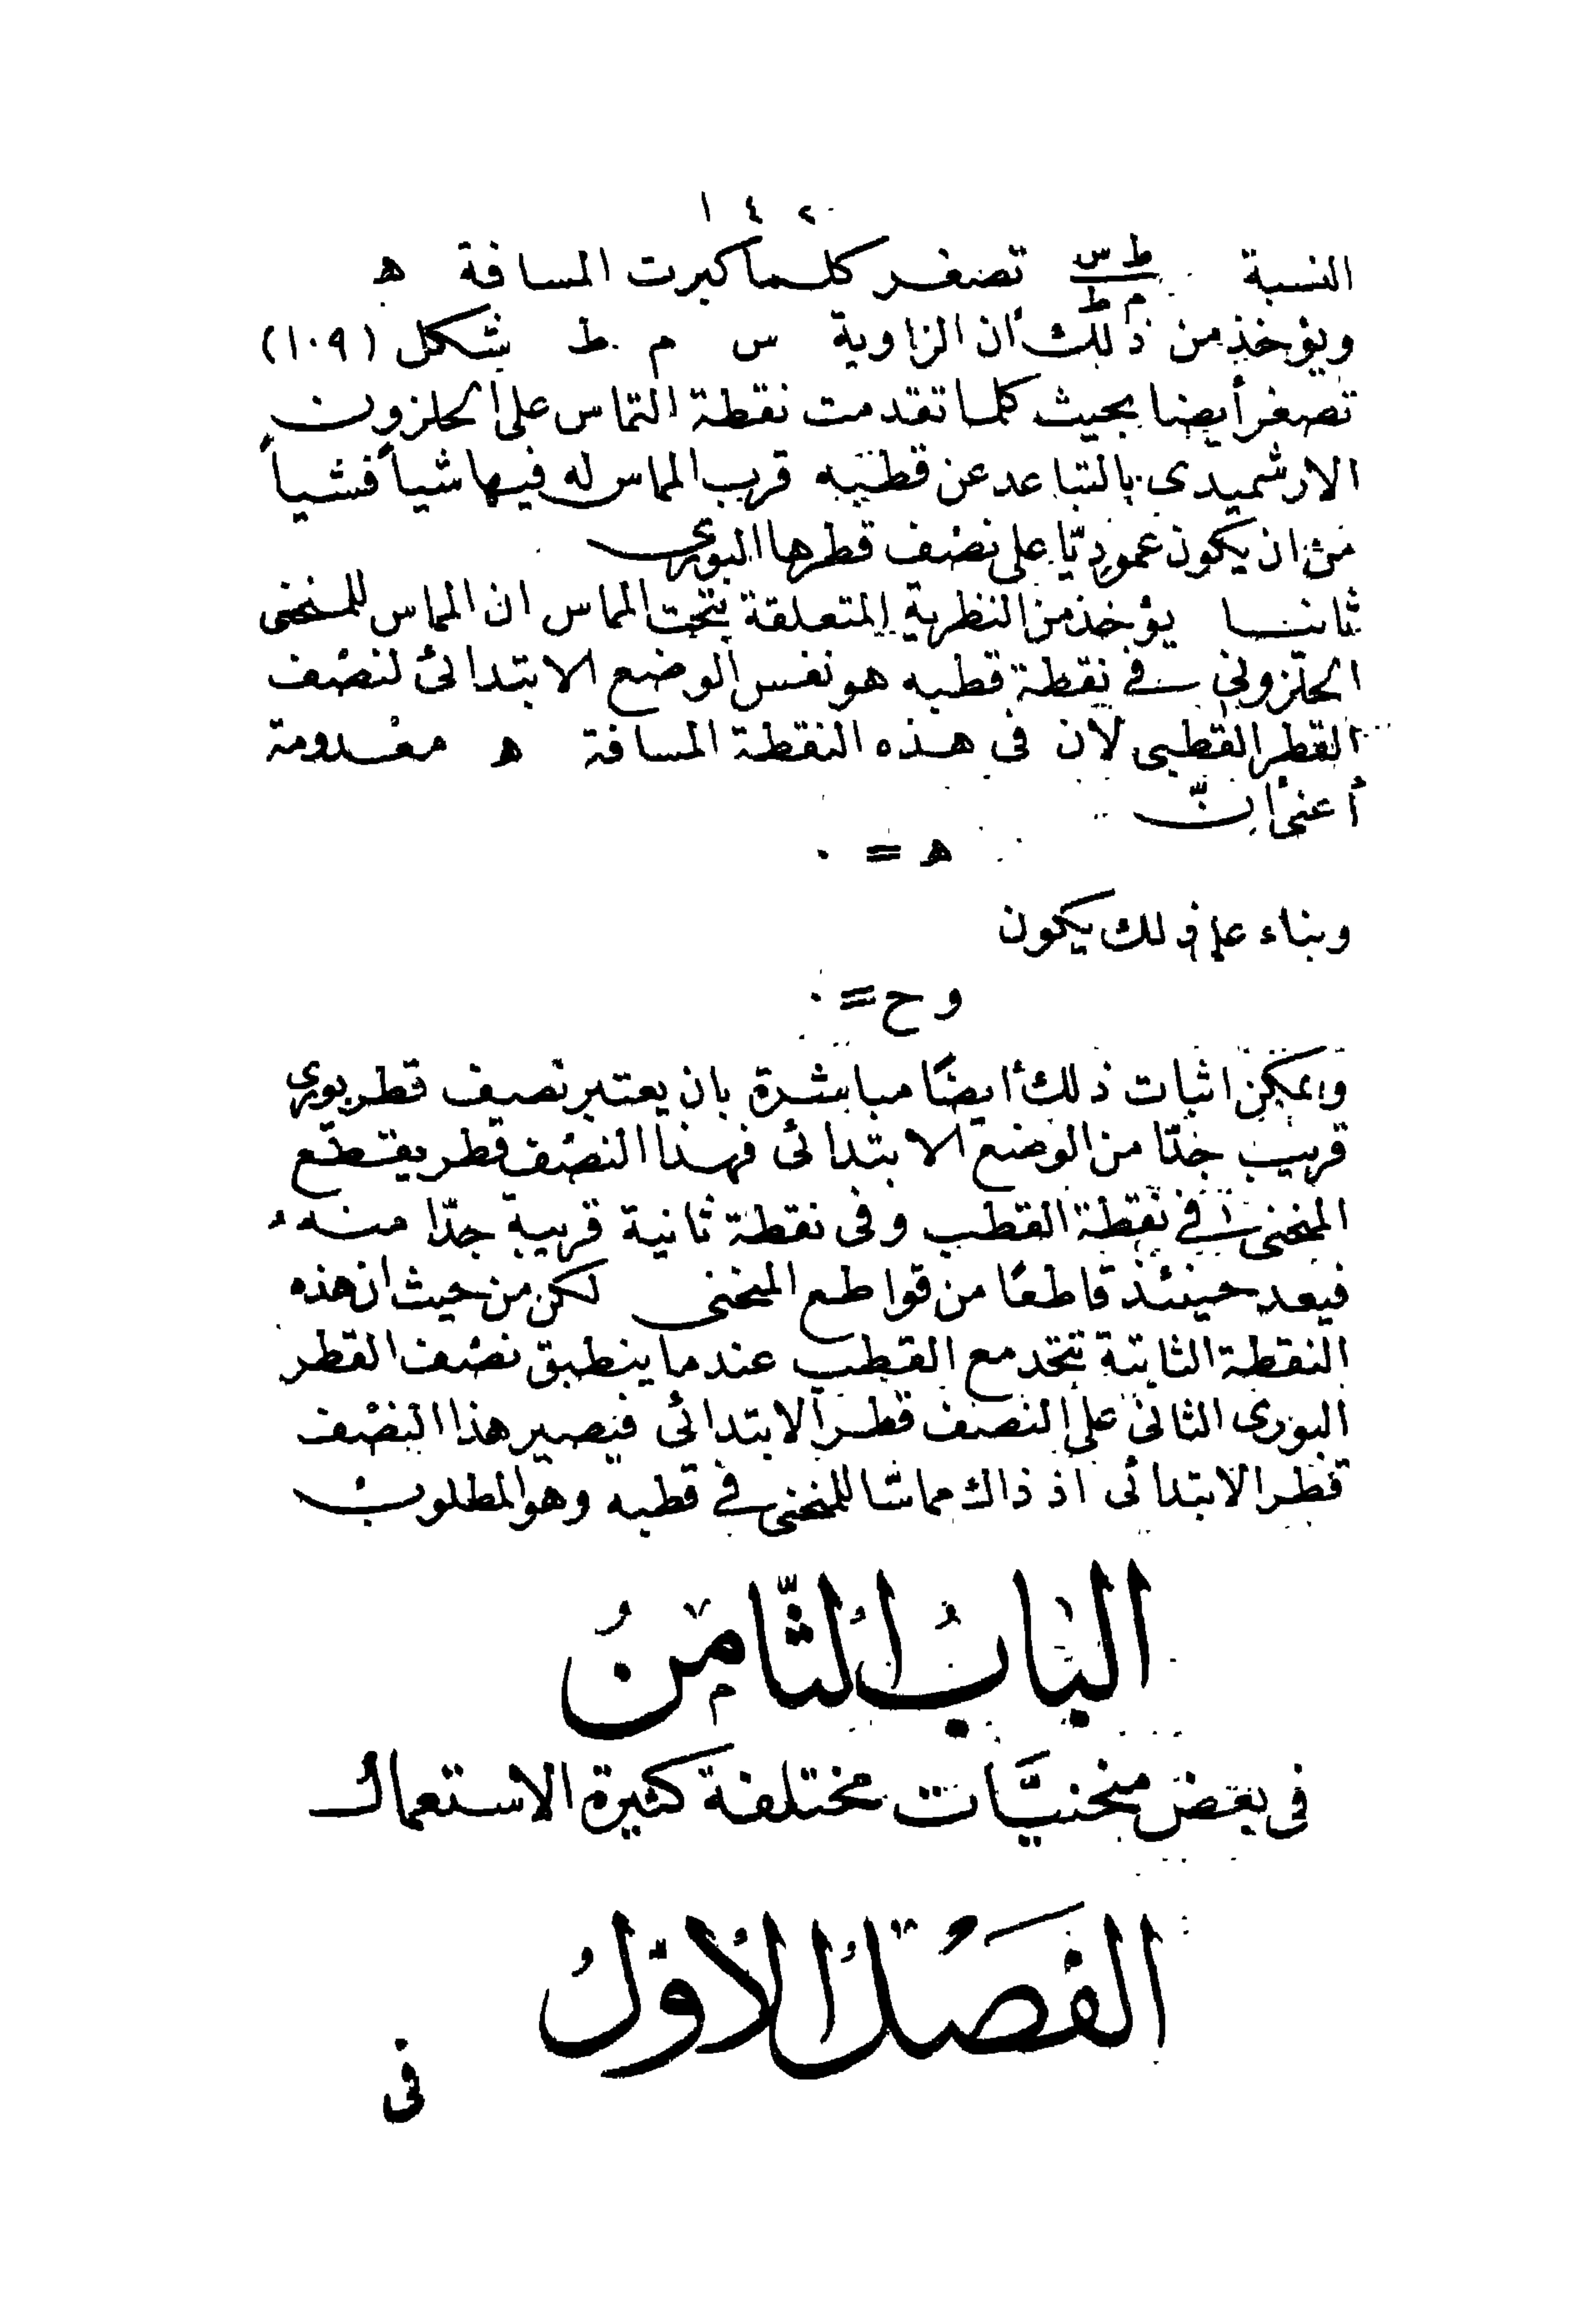 ١٤٢
النسبة ط س / م ط تصغر كلما كبرت المسافة ھ
ويؤخذ من ذلك ان الزاوية س م ط شكل (١٠٩)
تصغر أيضا بحيث كلما تقدمت نقطة التماس على الحلزون
الارشميدى بالتباعد عن قطبه قرب المماس له فيها شيأ فشيأ
من ان يكون عموديّا على نصف قطرها البورى
ثانيا يؤخذ من النظرية المتعلقة بتحت المماس ان المماس للمنحنى
الحلزونى فى نقطة قطبه هو نفس الوضع الابتدائى لنصف
القطر القطبى لان فى هذه النقطة المسافة ھ معدومة
أعنى انّ
ھ = ٠
وبناء على ذلك يكون
و ح = ٠
ويمكن اثبات ذلك أيضًا مباشرة بان يعتبر نصف قطر بورى
قريب جدّا من الوضع الابتدائى فهذا النصف قطر يقطع
المنحنى فى نقطة القطب وفى نقطة ثانية قريبة جدّا منه
فيعد حينئذ قاطعًا من قواطع المنحنى لكن من حيث ان هذه
النقطة الثانية تتحد مع القطب عندما ينطبق نصف القطر
البورى الثانى على النصف قطر الابتدائى فيصير هذا النصف
قطر الابتدائى اذ ذاك مماسّا للمنحنى فى قطبه وهو المطلوب
البَابُ الثَّامِنُ
فى بعض منحنيَّات مختلفة كثيرة الاستعمال
الفَصْلُ الأوّلُ
فى